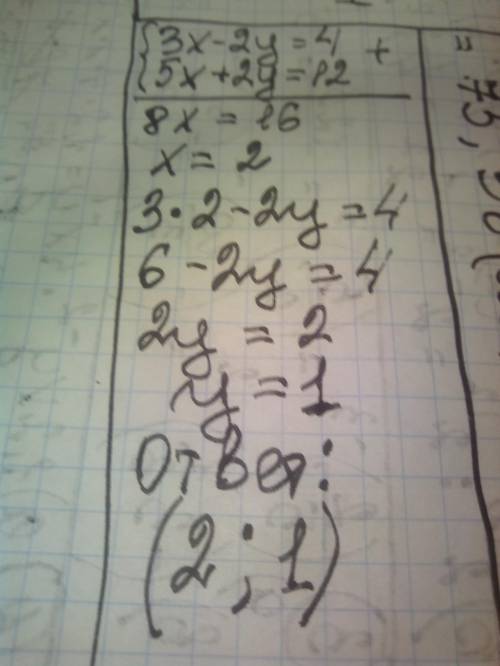 {3x-2y=4 +
{5x+2y=12
8x=16
x=2
3·2-2y=4
6-2y=4
2y=2
y=1
Ответ:
(2;1)
=75,